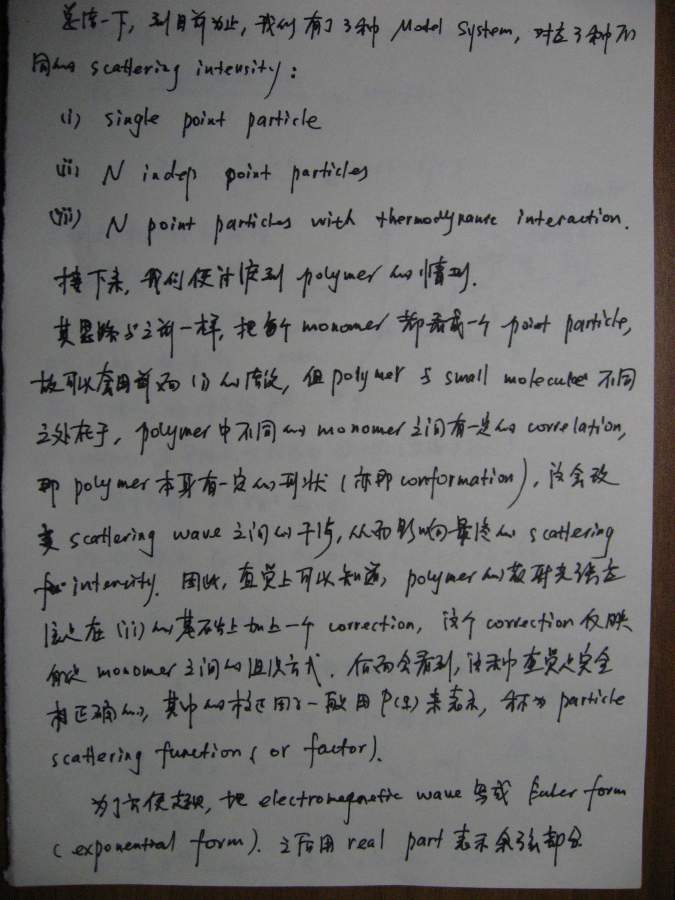 总结一下，到目前为止，我们有了3种 Model System，对应3种不
同的 scattering intensity：
(i) single point particle
(ii) N indep point particles
(iii) N point particles with thermodynamic interaction.
接下来，我们便讨论到 polymer 的情形.
其思路与之前一样，把每个 monomer 都看成一个 point particle,
故可以套用前面 (i) 的结论，但 polymer 与 small molecule 不同
之处在于，polymer 中不同的 monomer 之间有一定的 correlation,
即 polymer 本身有一定的形状 (亦即 conformation)，这会改
变 scattering wave 之间的干涉，从而影响最终的 scattering
intensity. 因此，直觉上可以知道，polymer 的散射光强应
该是在 (ii) 的基础上加上一个 correction，这个 correction 反映
的是 monomer 之间的组织方式. 后面会看到，这种直觉是完全
正确的，其中的校正因子一般用 P(q) 来表示，称为 particle
scattering function (or factor).
为了方便起见，把 electromagnetic wave 写成 Euler form
(exponential form). 之后用 real part 表示余弦部分